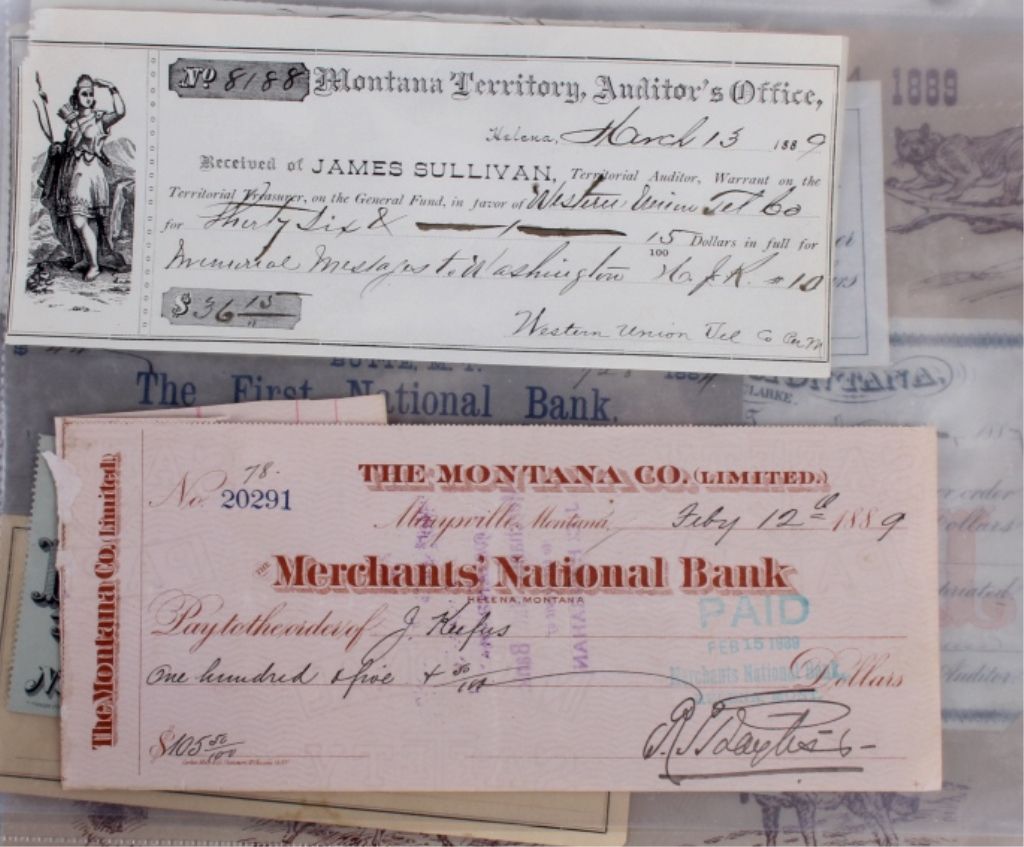 No 8188 Montana Territory, Auditor's Office,
Helena, March 13 1889
Received of JAMES SULLIVAN, Territorial Auditor, Warrant on the
Territorial Treasurer, on the General Fund, in favor of Western Union Tel Co
for Thirty Six & 15/100 Dollars in full for
Memorial Messages to Washington H. J. R. # 10
$ 36 15
Western Union Tel Co
1889
BUTTE, M. T.
The First National Bank.
MONTANA,
CLARKE
order
Dollars
Auditor
The Montana Co. Limited.
THE MONTANA CO. (LIMITED.)
78.
No. 20291
Marysville, Montana, Feby 12th 1889
THE Merchants' National Bank
HELENA, MONTANA
Pay to the order of J. Kufus
One hundred & five + 50/100 Dollars
PAID
FEB 15 1889
Merchants National Bank,
$105 50/100